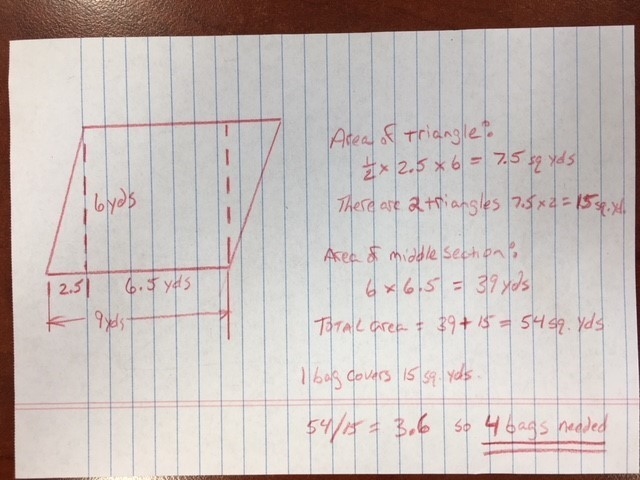 6 yds
2.5
6.5 yds
9 yds
Area of triangle:
1/2 x 2.5 x 6 = 7.5 sq yds
There are 2 triangles 7.5 x 2 = 15 sq. yd.
Area of middle section:
6 x 6.5 = 39 yds
TOTAL area = 39 + 15 = 54 sq. yds
1 bag covers 15 sq. yds.
54/15 = 3.6 so 4 bags needed